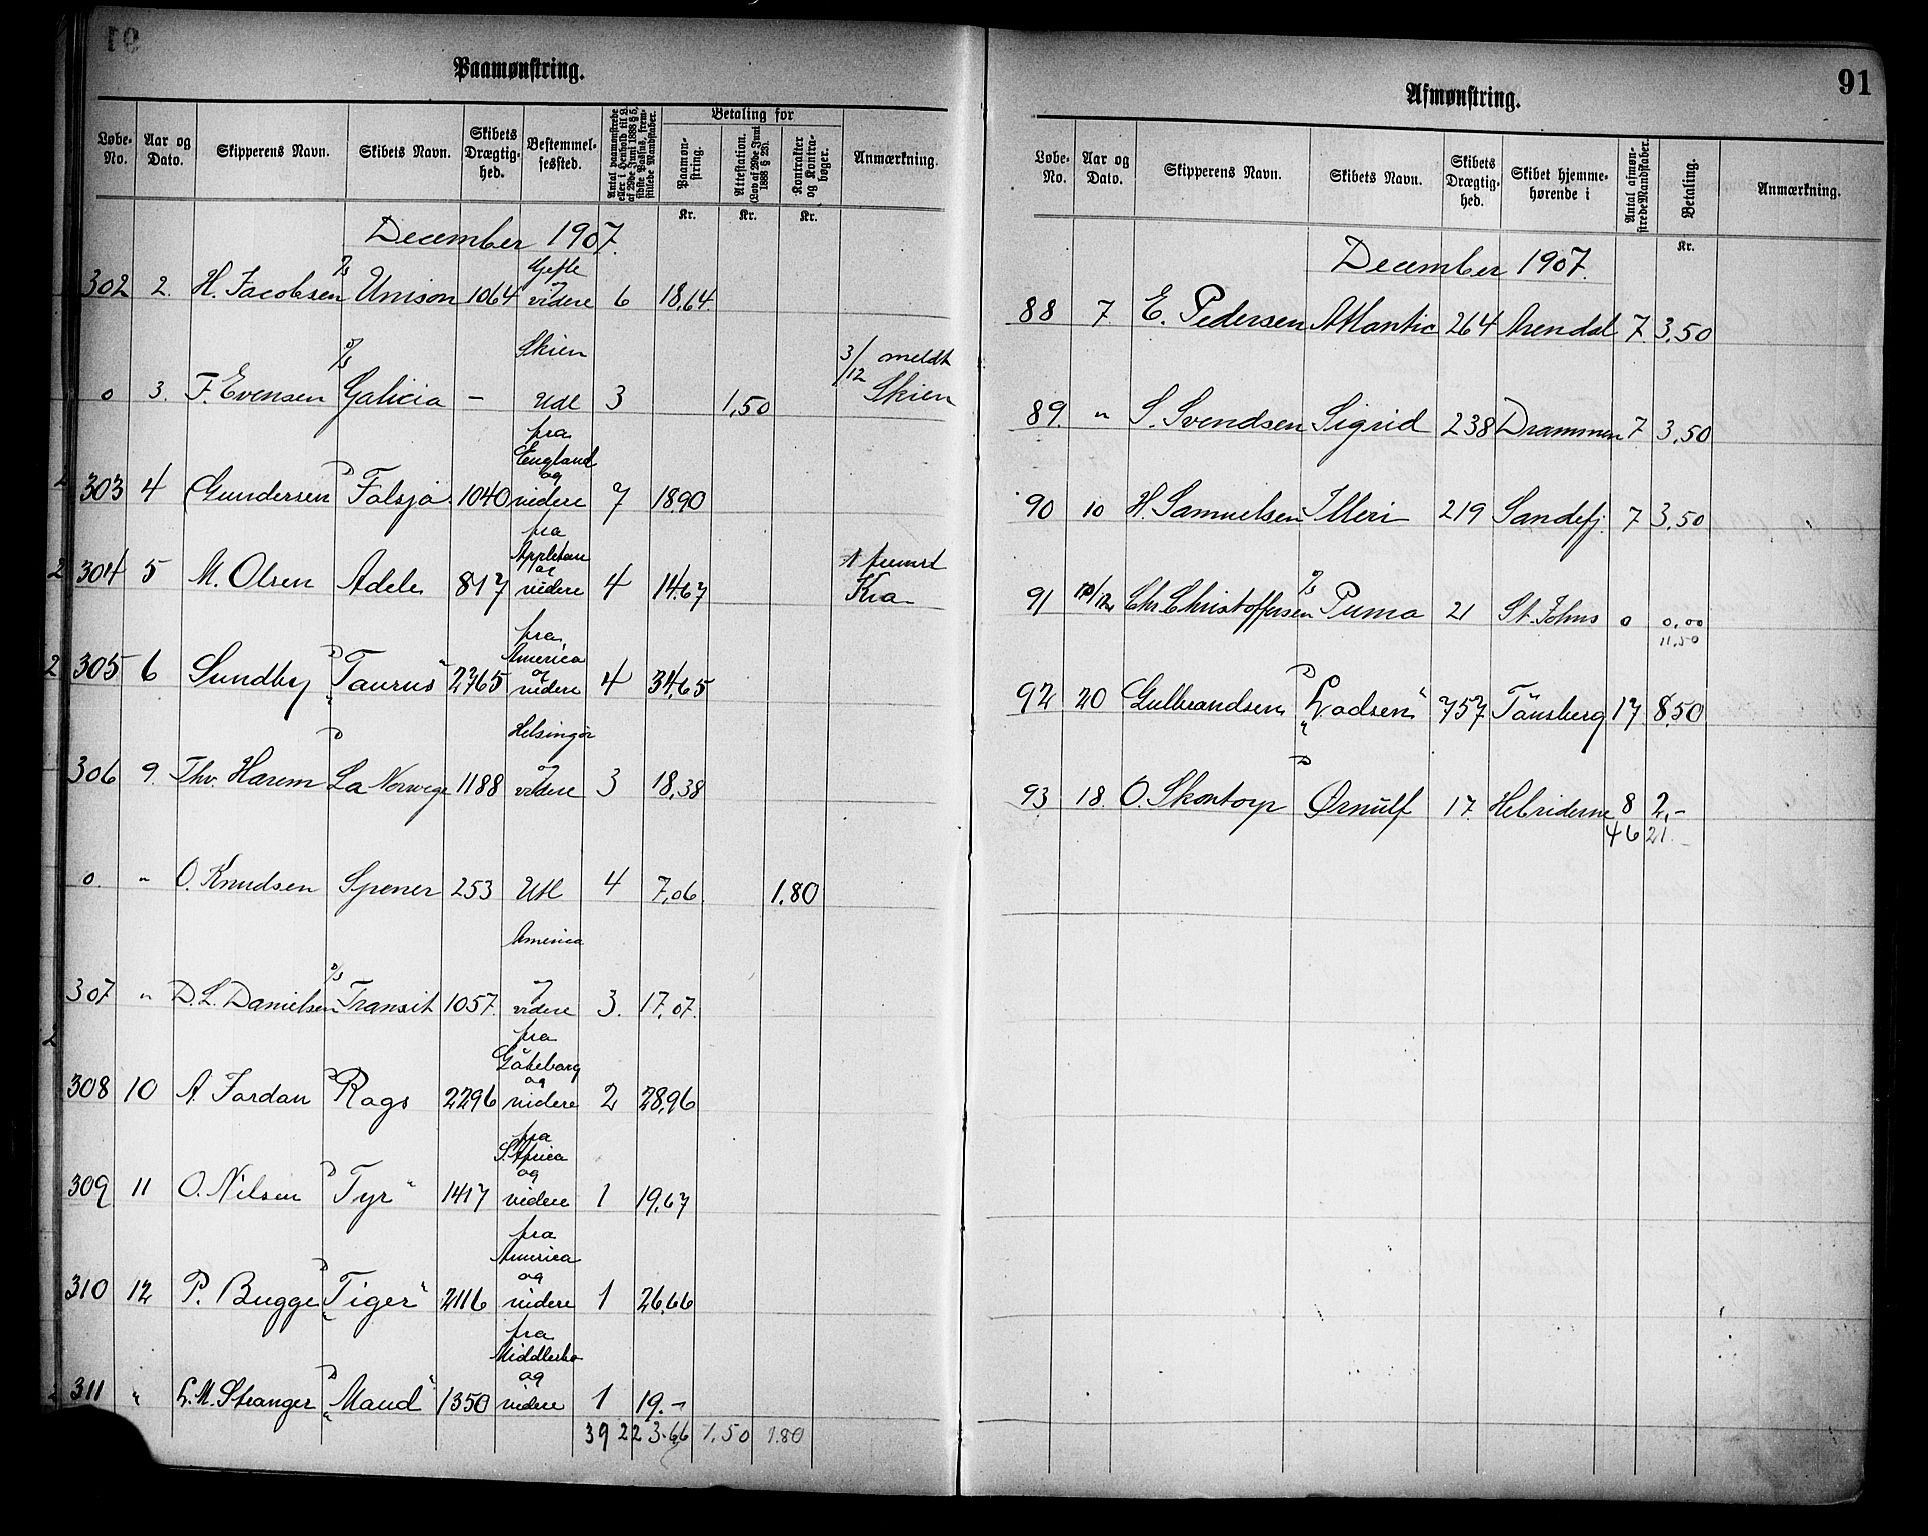 Paamønstring.
Løbe-No. Aar og Dato. Skipperens Navn. Skibets Navn. Skibets Drægtig-hed. Bestemmel-sessted. Antal paamønstrede eller i Henhold til L. af 29de Juni 1888 § 5, sidste Passus, frem-stillede Mandskaber. Betaling for Paamøn-string. Attestation. (Lov af 29de Juni 1888 § 23). Kontrakter og Kontra-bøger. Anmærkning.
Kr. Kr. Kr.
December 1907.
302 2. H. Jacobsen D/s Unison 1064 Gefle og videre 6 18,64
0 3. F. Evensen D/s Galicia - Skien Udl 3 1,50 3/12 meldt Skien
303 4 Gundersen D Falsjo 1040 fra England og videre 7 18.90
304 5 M. Olsen Adele 817 fra og videre 4 14.67 Kra-
305 6 Sundby D "Taurus" 2765 fra America og videre 4 34,65
306 9. Thv. Harem D La Norwege 1188 Helsingør og videre 3 18,38
0. " O. Knudsen Spener 253 Utl 4 7,06 1.80
307 " D. L. Danielsen D/s Transit 1057. America og videre 3. 17,07.
308 10 A Jordan D Rags 2296 fra Göteborg og videre 2 28,96
309 11 O. Nilsen D Tyr" 1417 fra S. Africa og videre 1 19,67
310 12 P. Bugge D "Tiger" 2116 fra America og videre 1 26,66
311 " L. M. Stranger D "Maud" 1350 fra Middlesbo og videre 1 19.-
39 223.66 1.50 1.80
91
Afmønstring.
Løbe-No. Aar og Dato. Skipperens Navn. Skibets Navn. Skibets Drægtig-hed. Skibet hjemme-hørende i Antal afmøn-strede Mandskaber. Betaling. Anmærkning.
Kr.
December 1907.
88 7 E. Pedersen Atlantic 264 Arendal 7 3,50
89. " S. Svendsen Sigrid 238 Drammen 7 3,50
90 10 H. Samuelsen Illeri 219 Sandefj. 7 3,50
91 Chr. Christoffersen D/s Puma 21 St. Johns 0 0,00
11,50
92 20 Gulbrandsen D "Hadsen" 757 Tönsberg 17 8.50
93 18 O. Skontorp D Ørnulf 17 Hebriderne 8 2,-
46 21.-